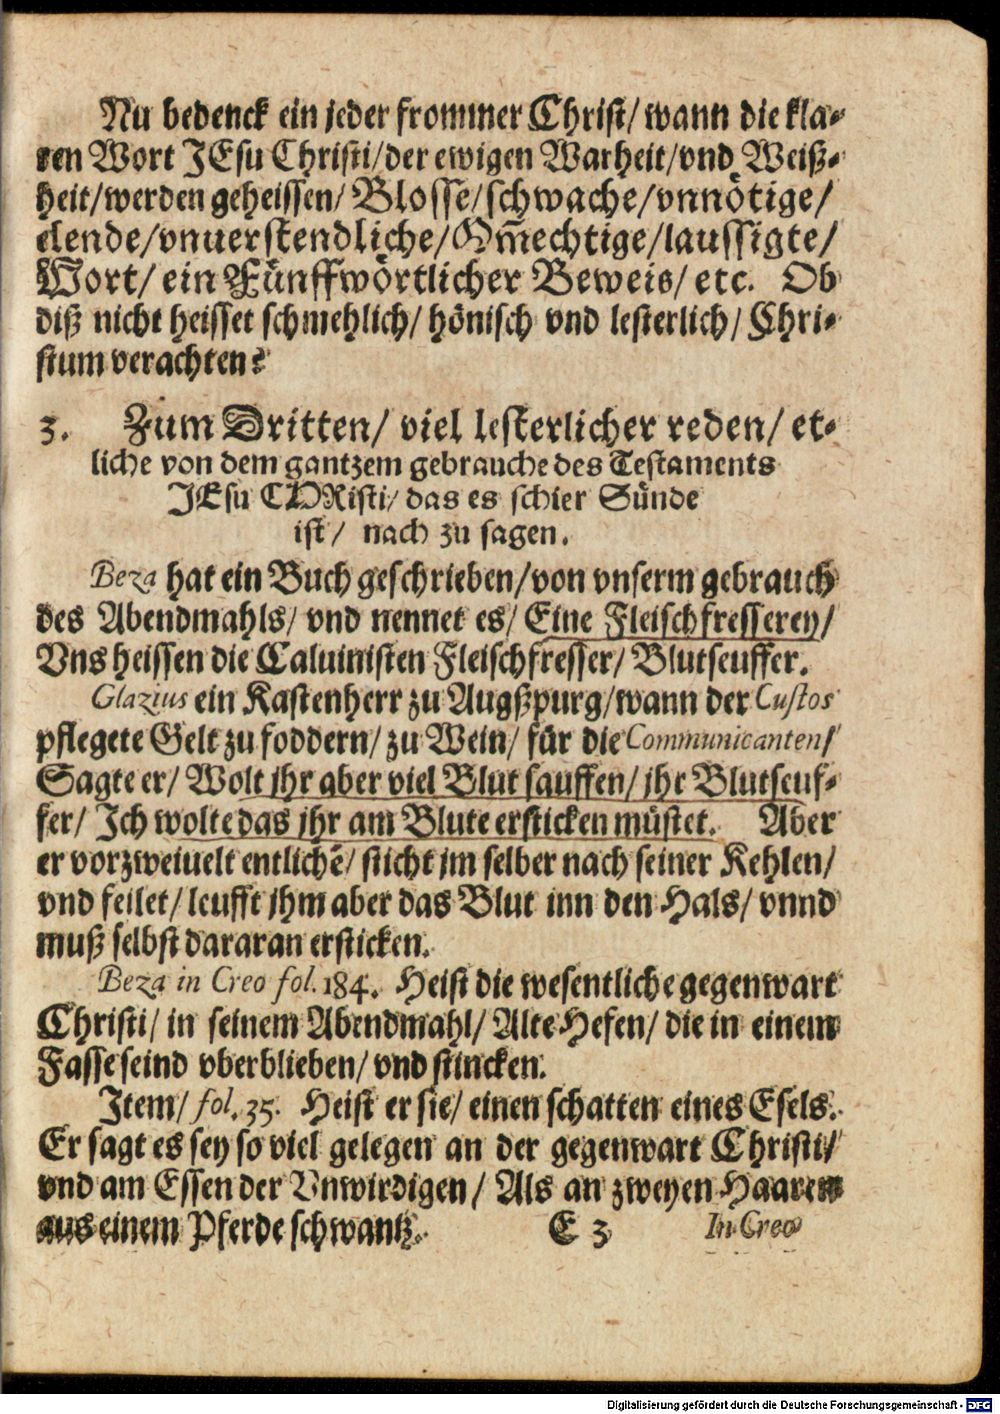 Nu bedenck ein jeder frommer Christ/ wann die kla-
ren Wort JEsu Christi/ der ewigen Warheit/ vnd Weiß-
heit/ werden geheissen/ Blosse/ schwache/ vnnötige/
elende/ vnuerstendliche/ Om̄echtige/ laussigte/
Wort/ ein Fünffwörtlicher Beweis/ etc. Ob
diß nicht heisset schmehlich/ hönisch vnd lesterlich/ Chri-
stum verachten?
3. Zum Dritten/ viel lesterlicher reden/ et-
liche von dem gantzem gebrauche des Testaments
JEsu CHRisti/ das es schier Sünde
ist/ nach zu sagen.
Beza hat ein Buch geschrieben/ von vnserm gebrauch
des Abendmahls/ vnd nennet es/ Eine Fleischfresserey/
Vns heissen die Caluinisten Fleischfresser/ Blutseuffer.
Glazius ein Kastenherr zu Augßpurg/ wann der Custos
pflegete Gelt zu foddern/ zu Wein/ für die Communicanten/
Sagte er/ Wolt jhr aber viel Blut sauffen/ jhr Blutseuf-
fer/ Ich wolte das jhr am Blute ersticken müstet. Aber
er vorzweiuelt entlichē/ sticht jm selber nach seiner Kehlen/
vnd feilet/ leufft jhm aber das Blut inn den Hals/ vnnd
muß selbst dararan ersticken.
Beza in Creo fol. 184. Heist die wesentliche gegenwart
Christi/ in seinem Abendmahl/ Alte Hefen/ die in einem
Fasse seind vberblieben/ vnd stincken.
Item/ fol. 35. Heist er sie/ einen schatten eines Esels.
Er sagt es sey so viel gelegen an der gegenwart Christi/
vnd am Essen der Vnwirdigen/ Als an zweyen Haaren
aus einem Pferde schwantz. E 3 In Creo
Digitalisierung gefördert durch die Deutsche Forschungsgemeinschaft - DFG